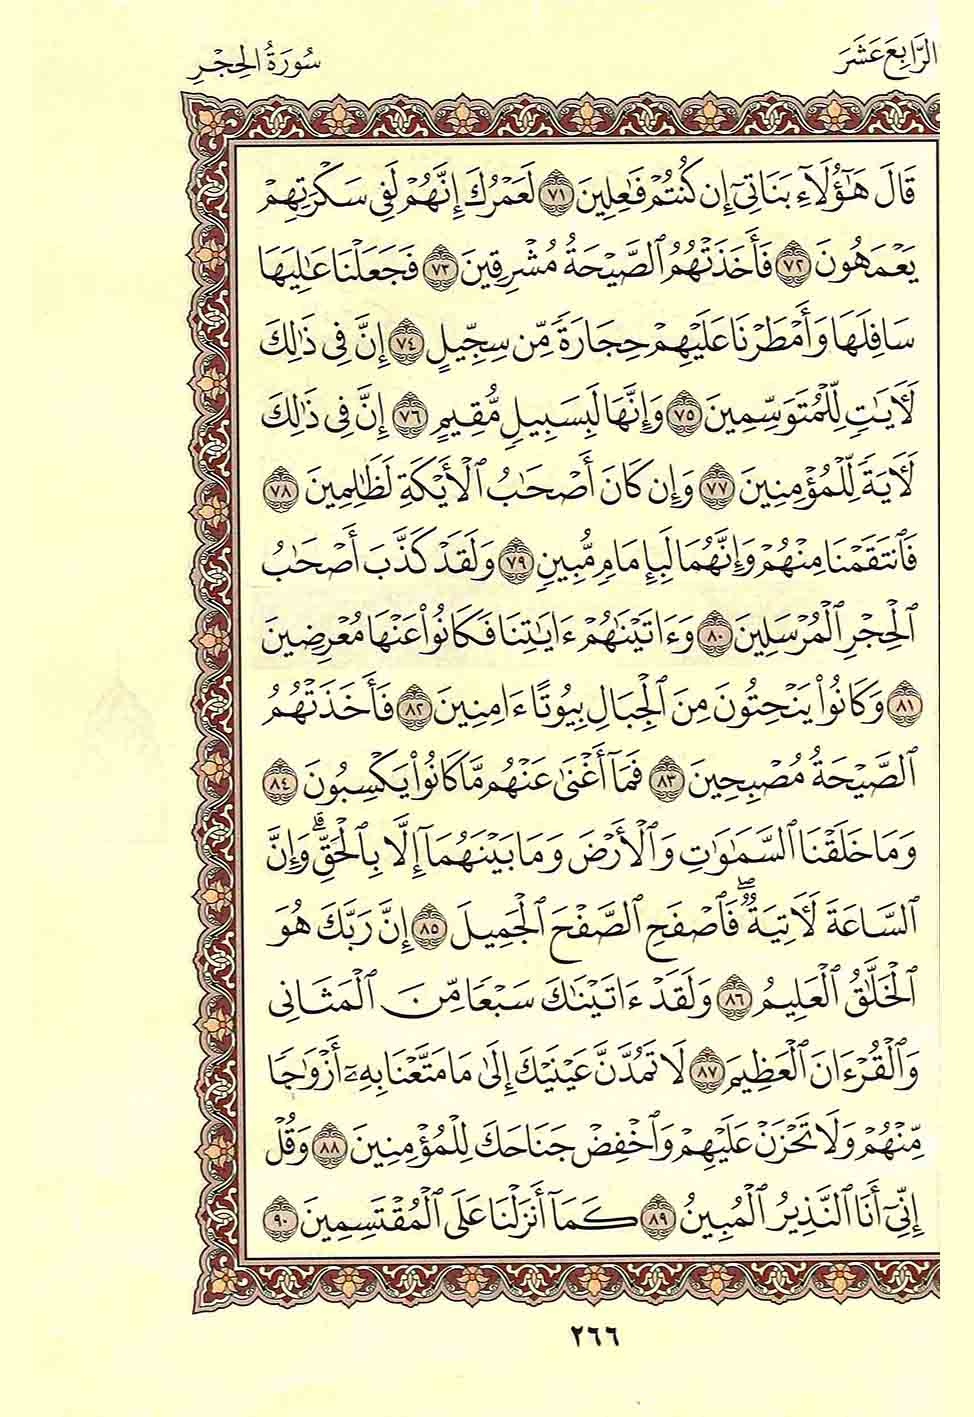 الرَّابِعَ عَشَرَ
سُورَةُ الحِجْرِ
قَالَ هَٰٓؤُلَآءِ بَنَاتِىٓ إِن كُنتُمْ فَٰعِلِينَ ٧١ لَعَمْرُكَ إِنَّهُمْ لَفِى سَكْرَتِهِمْ
يَعْمَهُونَ ٧٢ فَأَخَذَتْهُمُ ٱلصَّيْحَةُ مُشْرِقِينَ ٧٣ فَجَعَلْنَا عَٰلِيَهَا
سَافِلَهَا وَأَمْطَرْنَا عَلَيْهِمْ حِجَارَةً مِّن سِجِّيلٍ ٧٤ إِنَّ فِى ذَٰلِكَ
لَءَايَٰتٍ لِّلْمُتَوَسِّمِينَ ٧٥ وَإِنَّهَا لَبِسَبِيلٍ مُّقِيمٍ ٧٦ إِنَّ فِى ذَٰلِكَ
لَءَايَةً لِّلْمُؤْمِنِينَ ٧٧ وَإِن كَانَ أَصْحَٰبُ ٱلْأَيْكَةِ لَظَٰلِمِينَ ٧٨
فَٱنتَقَمْنَا مِنْهُمْ وَإِنَّهُمَا لَبِإِمَامٍ مُّبِينٍ ٧٩ وَلَقَدْ كَذَّبَ أَصْحَٰبُ
ٱلْحِجْرِ ٱلْمُرْسَلِينَ ٨٠ وَءَاتَيْنَٰهُمْ ءَايَٰتِنَا فَكَانُوا۟ عَنْهَا مُعْرِضِينَ
٨١ وَكَانُوا۟ يَنْحِتُونَ مِنَ ٱلْجِبَالِ بُيُوتًا ءَامِنِينَ ٨٢ فَأَخَذَتْهُمُ
ٱلصَّيْحَةُ مُصْبِحِينَ ٨٣ فَمَآ أَغْنَىٰ عَنْهُم مَّا كَانُوا۟ يَكْسِبُونَ ٨٤
وَمَا خَلَقْنَا ٱلسَّمَٰوَٰتِ وَٱلْأَرْضَ وَمَا بَيْنَهُمَآ إِلَّا بِٱلْحَقِّ ۗ وَإِنَّ
ٱلسَّاعَةَ لَءَاتِيَةٌ ۖ فَٱصْفَحِ ٱلصَّفْحَ ٱلْجَمِيلَ ٨٥ إِنَّ رَبَّكَ هُوَ
ٱلْخَلَّٰقُ ٱلْعَلِيمُ ٨٦ وَلَقَدْ ءَاتَيْنَٰكَ سَبْعًا مِّنَ ٱلْمَثَانِى
وَٱلْقُرْءَانَ ٱلْعَظِيمَ ٨٧ لَا تَمُدَّنَّ عَيْنَيْكَ إِلَىٰ مَا مَتَّعْنَا بِهِۦٓ أَزْوَٰجًا
مِّنْهُمْ وَلَا تَحْزَنْ عَلَيْهِمْ وَٱخْفِضْ جَنَاحَكَ لِلْمُؤْمِنِينَ ٨٨ وَقُلْ
إِنِّىٓ أَنَا ٱلنَّذِيرُ ٱلْمُبِينُ ٨٩ كَمَآ أَنزَلْنَا عَلَى ٱلْمُقْتَسِمِينَ ٩٠
٢٦٦